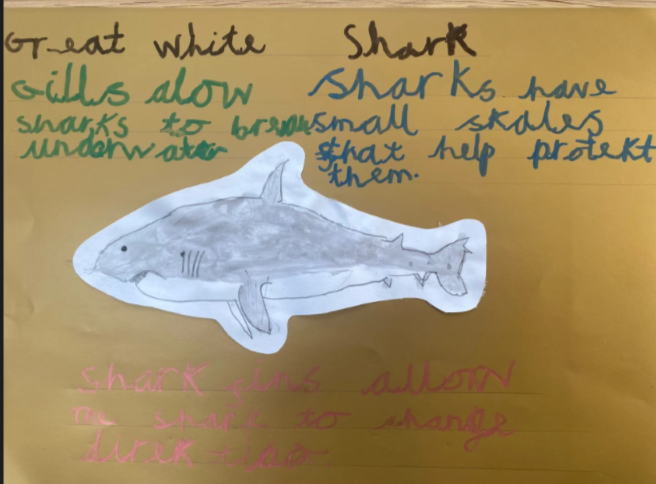 Great white Shark
Gills alow
sharks to breath
underwater
Sharks have
small skales
that help protekt
them.
Shark fins allow
the shark to change
direktion